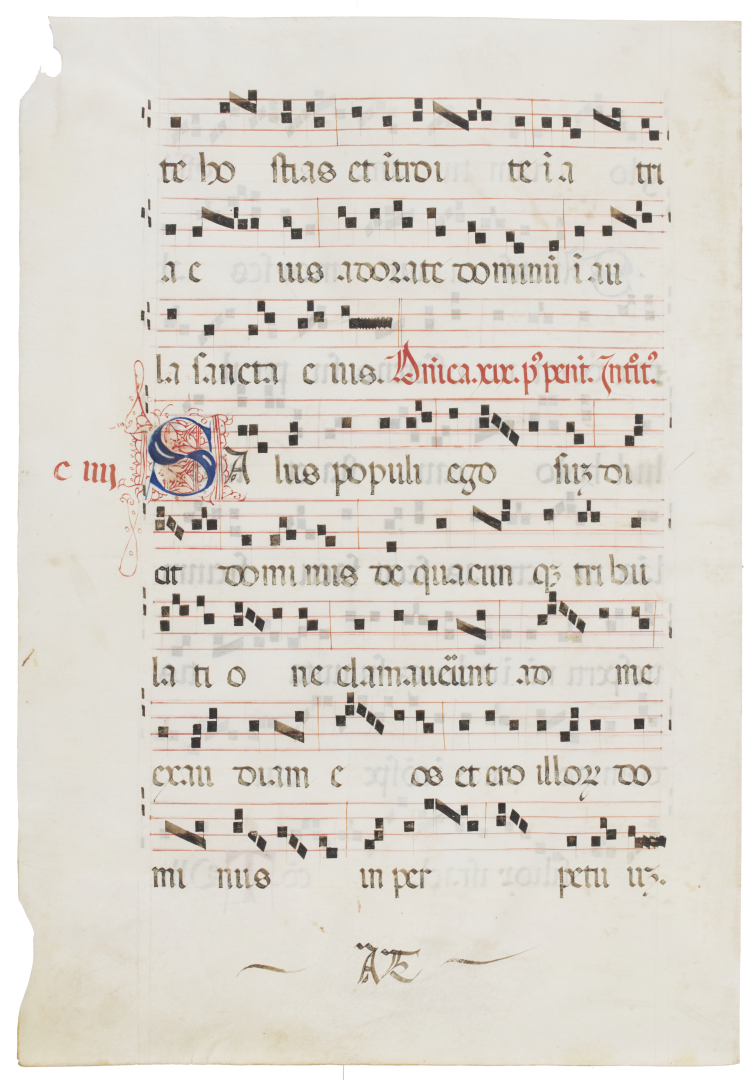 te ho stias et ītroi te ī a tri
a e ius adorate dominū ī au
la sancta e ius. Dn̄ica.xix. pꝰ pent̄. Introitꝰ.
c iiij SA lus populi ego suꝫ di
cit dominus de quacun qꝫ tri bu
la ti o ne clamaue᷑nt ad me
exau diam e os et ero illoꝝ do
mi nus in per petu uꝫ.